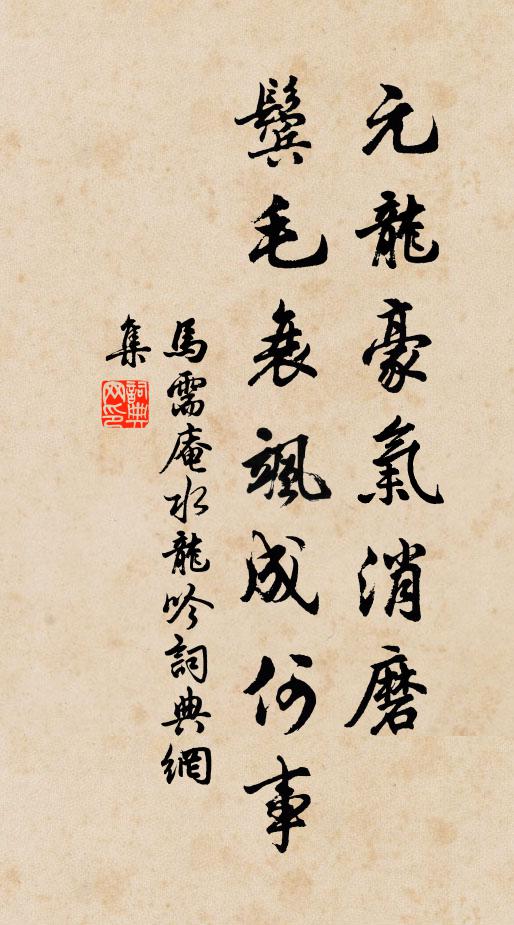 元龍豪氣消磨
鬓毛衰颯成何事
馬需庵水龍吟詞典網
集
詞典網印